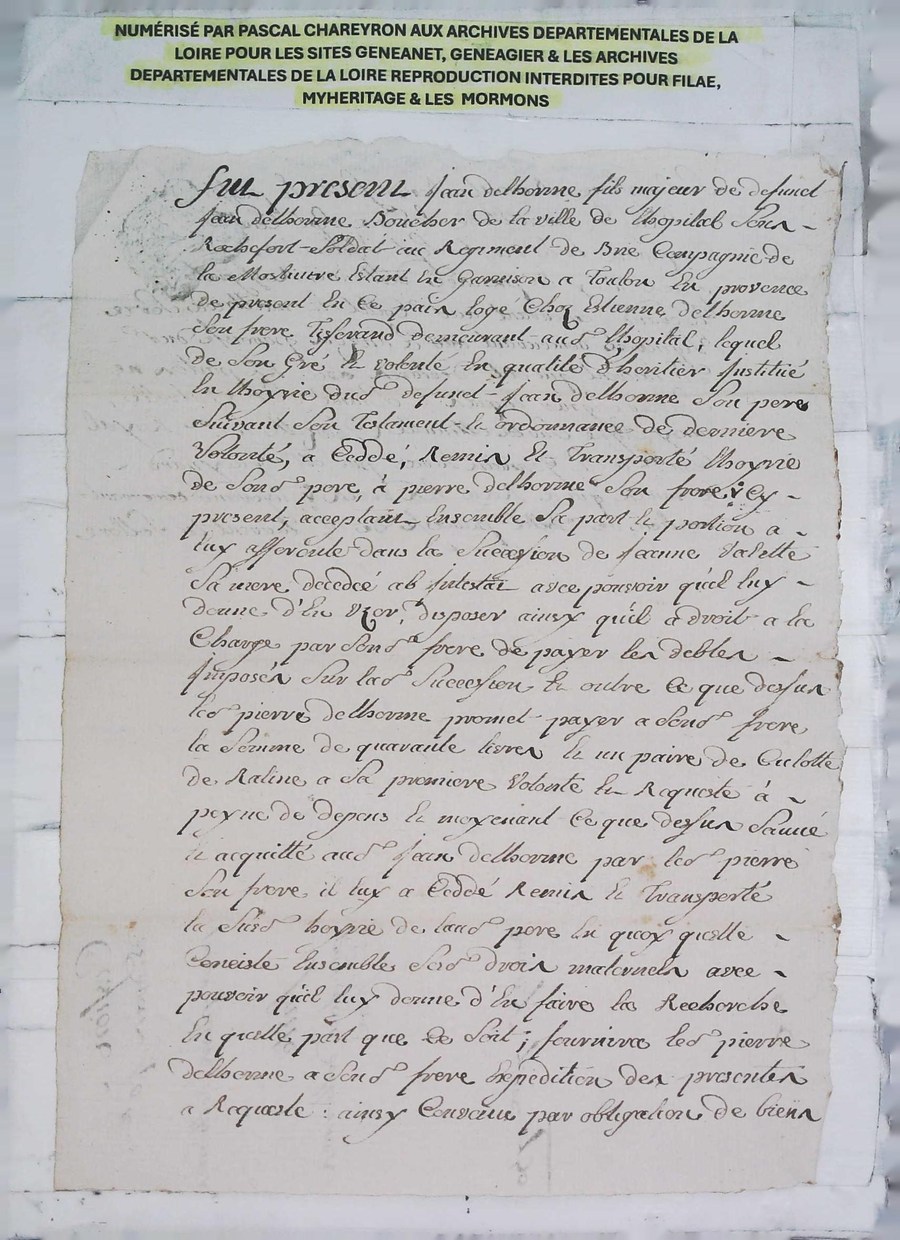 NUMÉRISÉ PAR PASCAL CHAREYRON AUX ARCHIVES DEPARTEMENTALES DE LA
LOIRE POUR LES SITES GENEANET, GENEAGIER & LES ARCHIVES
DEPARTEMENTALES DE LA LOIRE REPRODUCTION INTERDITES POUR FILAE,
MYHERITAGE & LES MORMONS
fut present Jean delhorme fils majeur de defunct
Jean delhorme Boucher de la ville de lhopital sous
Rochefort Soldat au Regiment de Compagnie de
la Estant en Garnison a Toulon en provence
de present en ce païs logé Chez Estienne delhorme
son frere Tisserand demeurant aud lhopital, lequel
de son Gré et volonté en qualité d'heritier Institué
en lhoyrie dud defunct Jean delhorme son pere
suivant son Testament et ordonnance de derniere
Volonté, a Ceddé, Remis et Transporté lhoyrie
de sond pere, à pierre delhorme son frere icy
present, acceptant Ensemble sa part et portion a
luy afferente dans la succession de Jeanne Valette
sa mere decedée ab Intestat avec pouvoir quil luy
donne d'En Uzer, disposer ainsy quil a droit a la
Charge par sond frere de payer les debtes
Imposés sur lad succession et outre ce que dessus
led pierre delhorme promet payer a sond frere
la somme de quarante livres et un paire de Culotte
de Ratine a sa premiere Volonté et Requeste à
peyne de depens et moyenant ce que dessus
et acquitté aud Jean delhorme par led pierre
son frere il luy a Ceddé Remis et Transporté
la susd hoyrie de pere en quoy quelle
Consiste Ensemble sesd droits maternels avec
pouvoir quil luy donne d'En faire la Recherche
En quelle part que ce soit; fournira led pierre
delhorme a sond frere Expedition des presentes
a Requeste: ainsy Convenu par obligation de biens